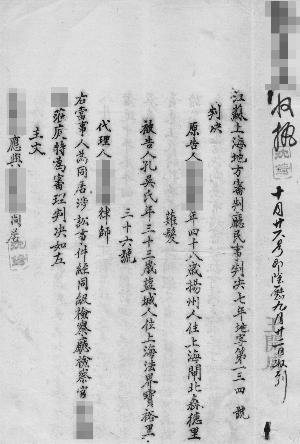 十月廿六号即陰曆九月廿二日收到
江蘇上海地方審判廳民事判决七年地字第一三四號
判决
原告人 年四十八歲揚州人住上海閘北森德里
薙髮
被告人孔吳氏年三十三歲鹽城人住上海法界寶裕里
三十六號
代理人 律師
右當事人為同居涉訟事件經同級檢察廳檢察官
蒞庭特為審理判决如左
主文
應與 同